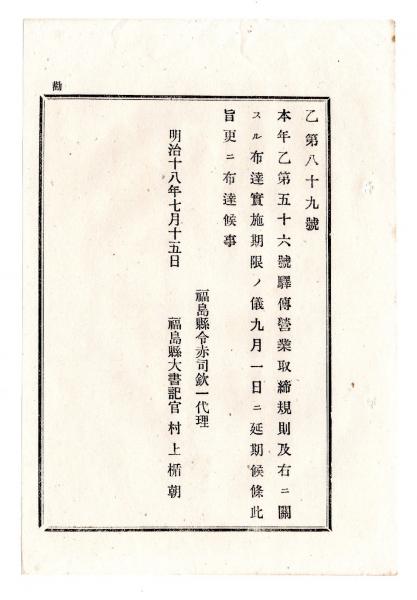 乙第八十九號
本年乙第五十六號驛傳營業取締規則及右ニ關
スル布達實施期限ノ儀九月一日ニ延期候條此
旨更ニ布達候事
明治十八年七月十五日
福島縣令赤司欽一代理
福島縣大書記官 村上楯朝
勸